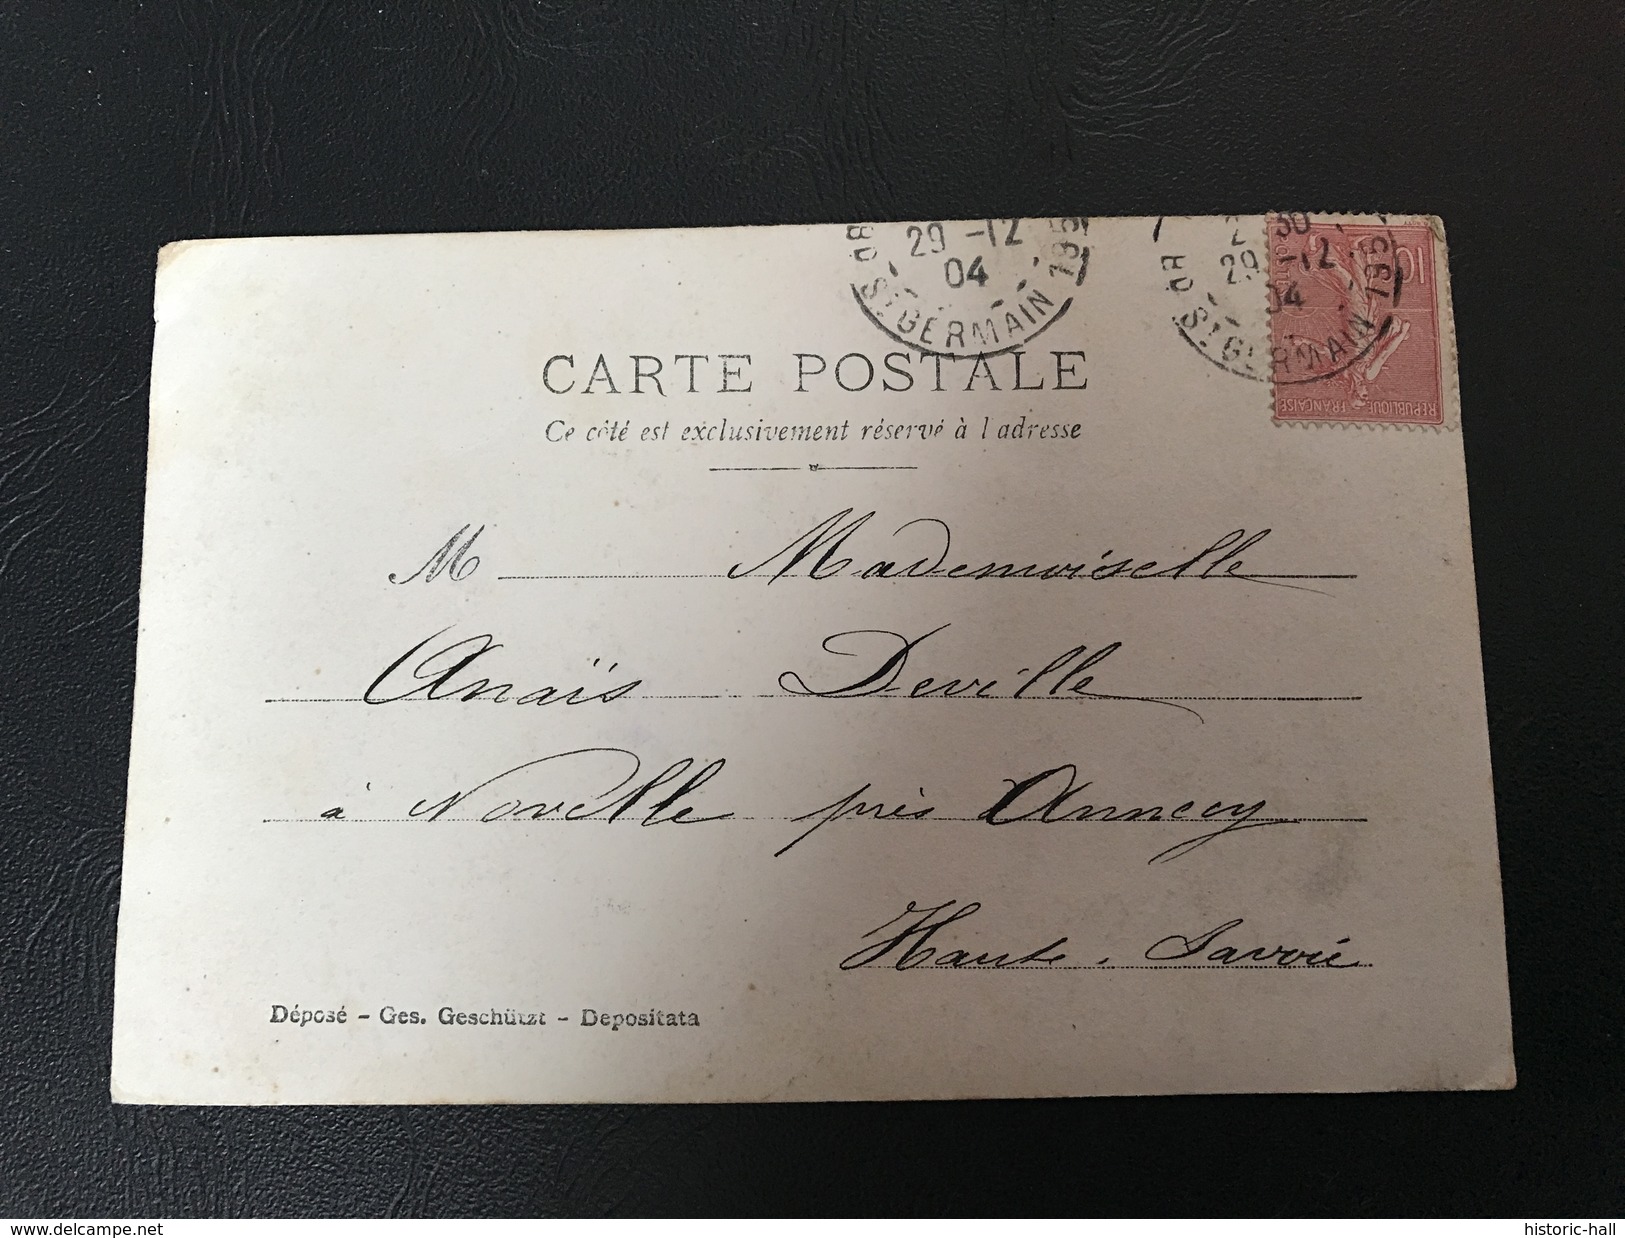 BD ST GERMAIN 195
29 -12
04
BD ST GERMAIN 195
30
29 -12
04
10
REPUBLIQUE FRANÇAISE
CARTE POSTALE
Ce côté est exclusivement réservé à l'adresse
M Mademoiselle
Anaïs Deville
à Novelle près Annecy
Haute-Savoie
Déposé - Ges. Geschützt - Depositata
www.delcampe.net
historic-hall